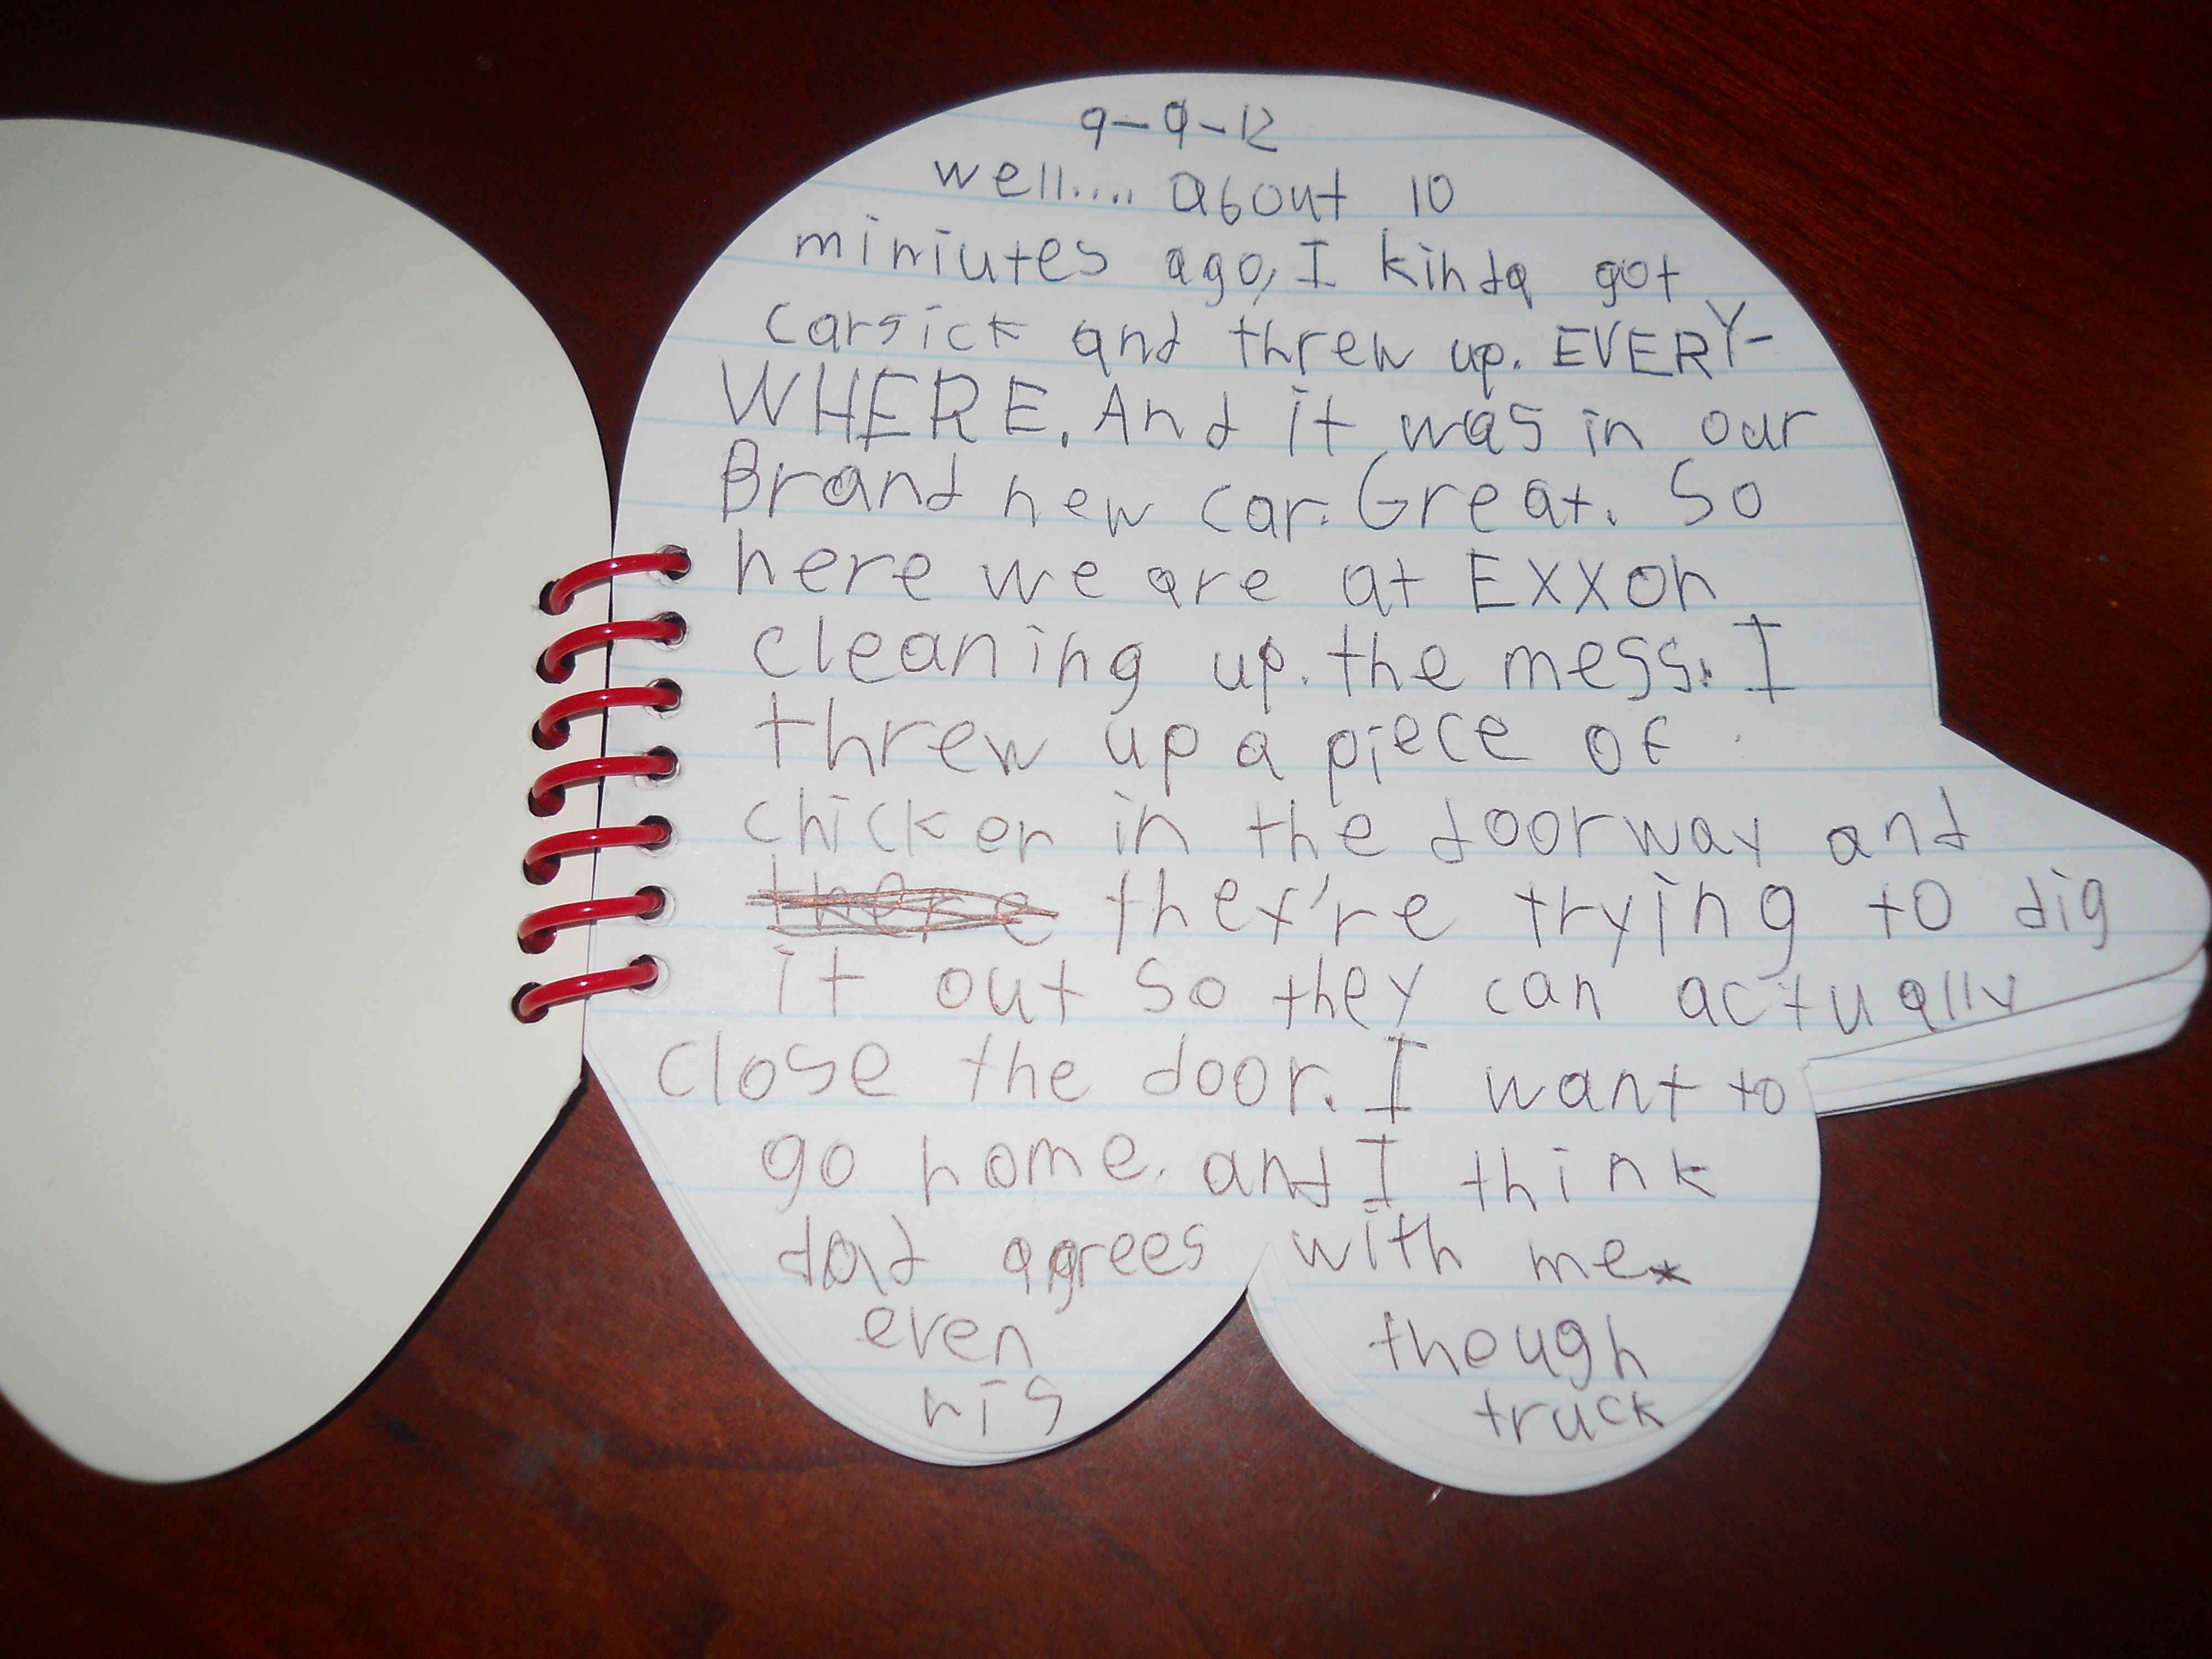 9-9-12
well.... about 10
miniutes ago, I kinda got
carsick and threw up. EVERY-
WHERE. And it was in our
Brand new car. Great. So
here we are at Exxon
cleaning up. the mess. I
threw up a piece of
chicken in the doorway and
there they're trying to dig
it out so they can actually
close the door. I want to
go home. and I think
dad agrees with me*
even though
his truck